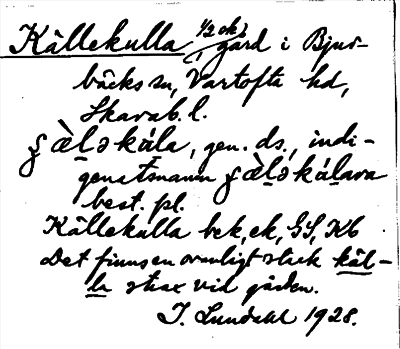 Källekulla, 1/2 ek, gård i Bjur-
bäcks sn, Vartofta hd,
Skarab. l.
ʂæ̀l̠ə kúla, gen. ds., indi-
genatsnamn ʂæ̀l̠ə kúl̠ara
best. pl.
Källekulla bek, ek, GS, Kb
Det finns en ovanligt stark käl-
la strax vid gården.
I. Lundahl 1928.